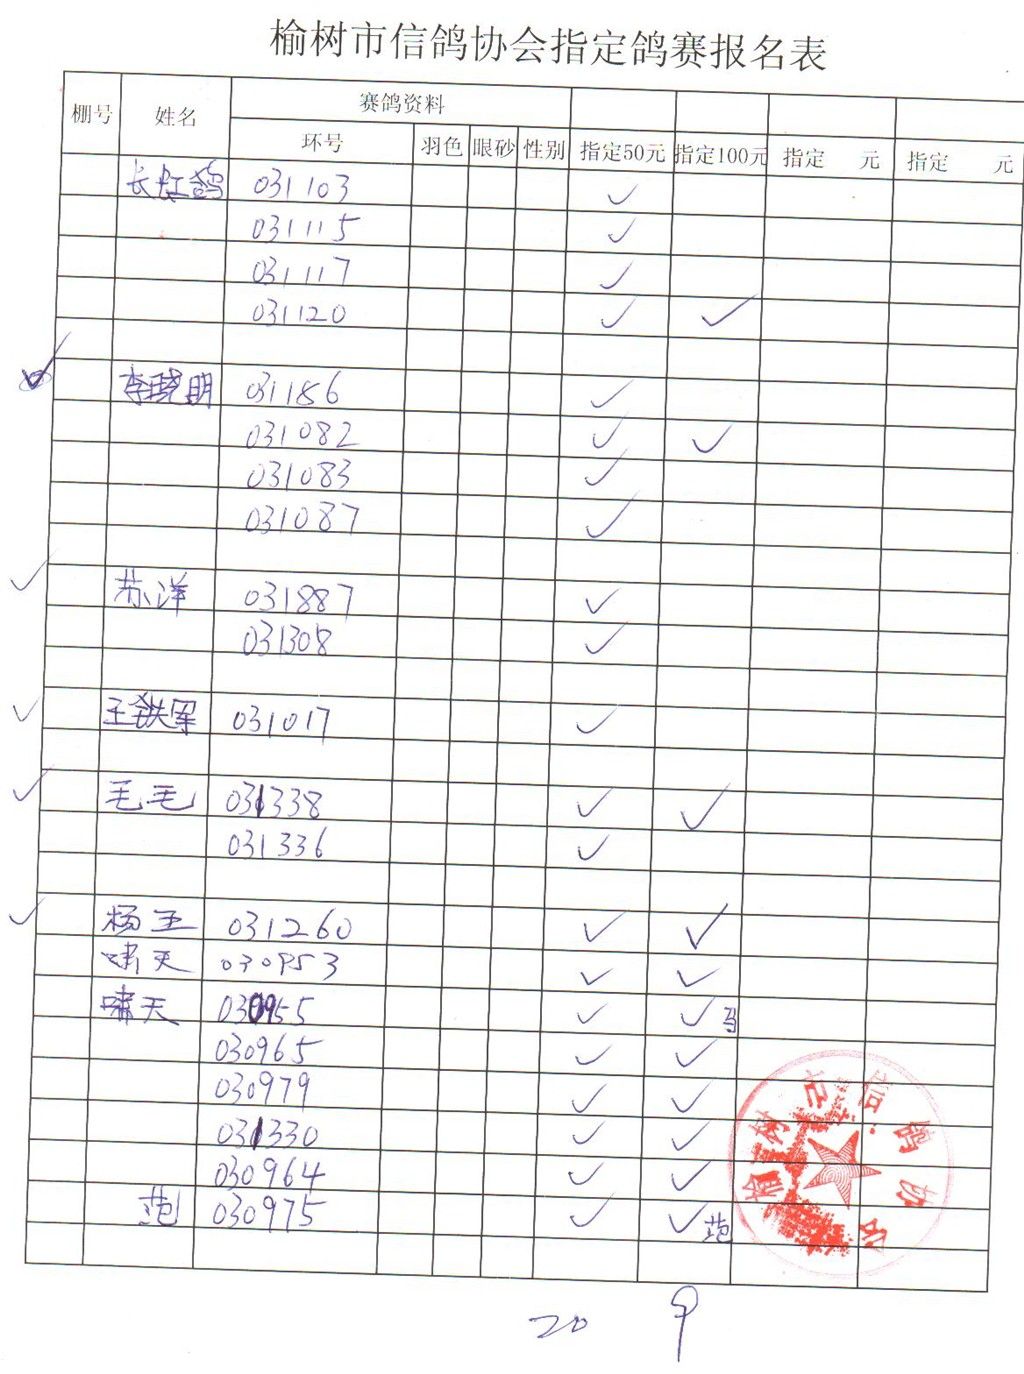 榆树市信鸽协会指定鸽赛报名表
棚号 姓名 赛鸽资料
环号 羽色 眼砂 性别 指定50元 指定100元 指定 元 指定 元
长虹鸽 031103 ✓
031115 ✓
031117 ✓
031120 ✓ ✓
✓ 李晓明 031186 ✓
031082 ✓ ✓
031083 ✓
031087 ✓
✓ 苏洋 031887 ✓
031308 ✓
✓ 王铁军 031017 ✓
✓ 毛毛 031338 ✓ ✓
031336 ✓
✓ 杨玉 031260 ✓ ✓
啸天 030953 ✓ ✓
啸天 030955 ✓ ✓ 马
030965 ✓ ✓
030979 ✓ ✓
031330 ✓ ✓
030964 ✓ ✓
030975 ✓ ✓
榆树市信鸽协会
20 9